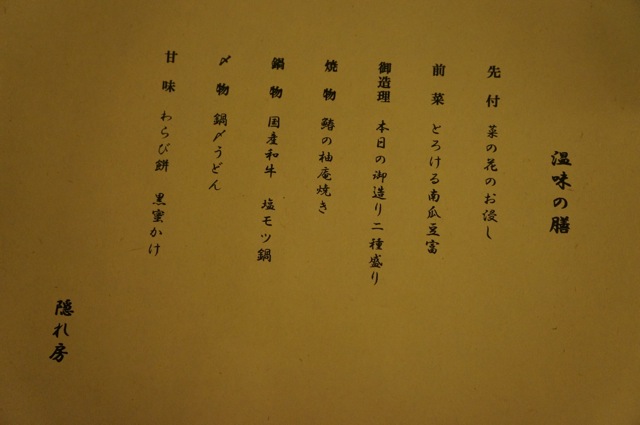 温味の膳
先付 菜の花のお浸し
前菜 とろける南瓜豆富
御造理 本日の御造り二種盛り
焼物 鰆の柚庵焼き
鍋物 国産和牛 塩モツ鍋
〆物 鍋〆うどん
甘味 わらび餅 黒蜜かけ
隠れ房